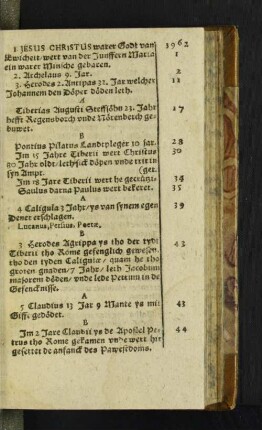 1 JESUS CHRISTUS warer Godt van 3962
Ewicheit/ wert van der Junffern Maria 1
ein warer Minsche gebaren.
2. Archelaus 9. Jar. 2
3. Herodes 2. Antipas 32. Jar welcher 11
Johannem den Döper döden leth.
A
Tiberias Augusti Steffsöhn 23. Jahr 17
hefft Regensborch vnde Nörenberch ge-
buwet.
B
Pontius Pilatus Landtpleger 10 Jar. 28
Im 15 Jahre Tiberii wert Christus 30
30 Jahr oldt/ leth sick döpen vnde tritt in
syn Ampt. (get.
Im 18 Jare Tiberii wert he gecrützi- 34
Saulus darna Paulus wert bekeret. 35
A
4 Caligula 3 Jahr/ ys van synem egen 39
Dener erschlagen.
Lucanus, Persius, Poetæ.
B
3 Herodes Agrippa ys tho der tydt 43
Tiberii tho Rome gefenglich gewesen
tho den tyden Caligulæ/ quam he tho
groten gnaden/ 7 Jahr/ leth Jacobum
majorem döden/ vnde lede Petrum in de
Gefencknisse.
A
5 Claudius 13 Jar 9 Mante ys mit 43
Gifft gedödet.
B
Im 2 Jare Claudii ys de Apostel Pe- 44
trus tho Rome gekamen vnde wert hir
gesettet de anfanck des Pawestdoms.